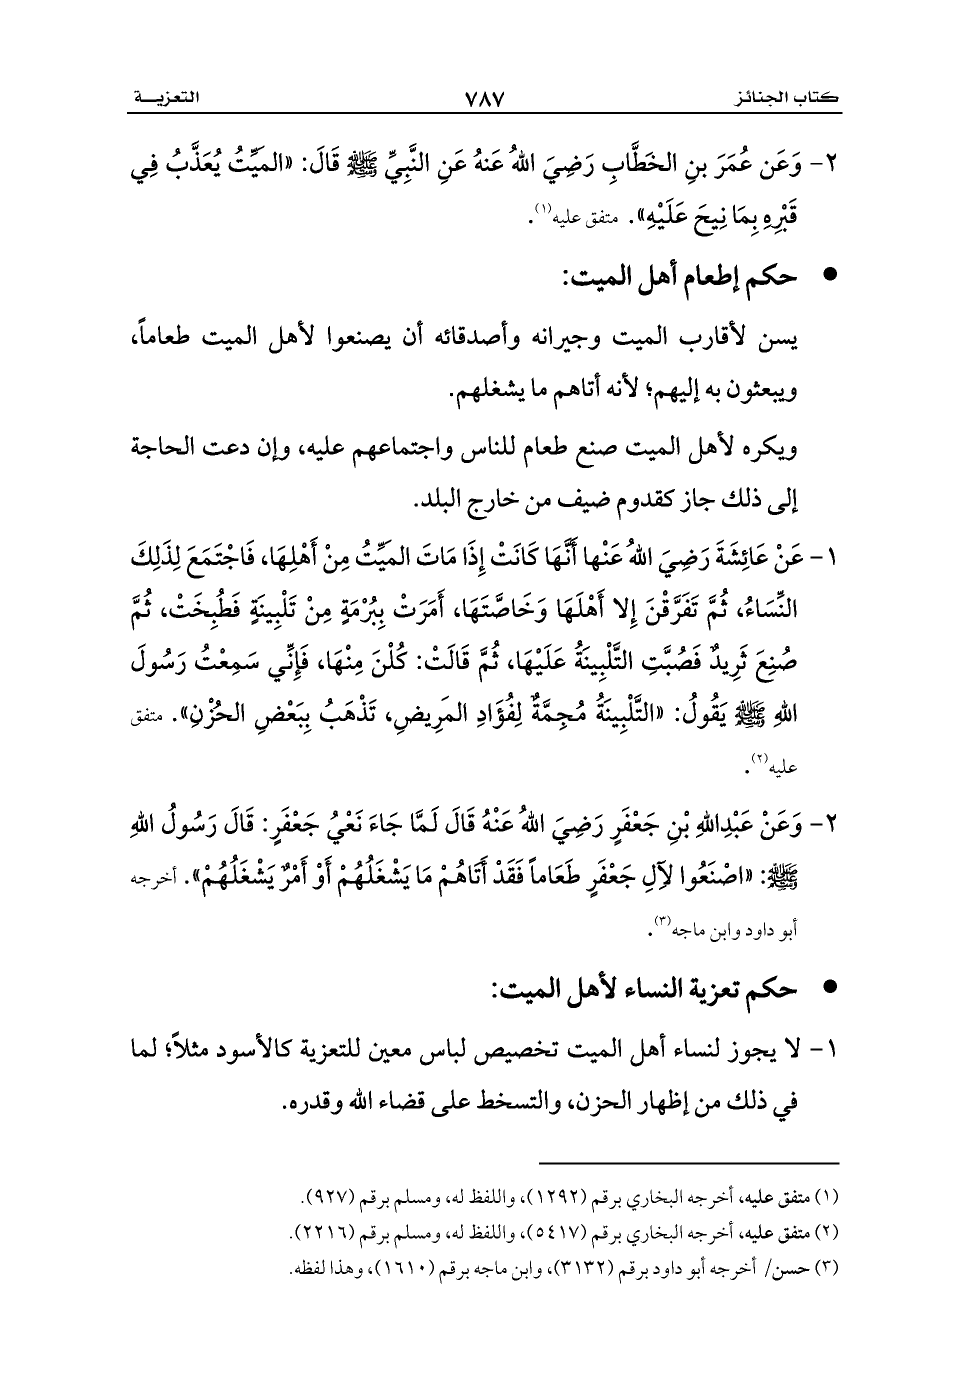 كتاب الجنائز ٧٨٧ التعزيـــة
٢- وَعَن عُمَرَ بنِ الخَطَّابِ رَضِيَ اللهُ عَنهُ عَنِ النَّبِيِّ ﷺ قَالَ: «الميِّتُ يُعَذَّبُ فِي
قَبْرِهِ بِمَا نِيحَ عَلَيْهِ». متفق عليه(١).
● حكم إطعام أهل الميت:
يسن لأقارب الميت وجيرانه وأصدقائه أن يصنعوا لأهل الميت طعاماً،
ويبعثون به إليهم؛ لأنه أتاهم ما يشغلهم.
ويكره لأهل الميت صنع طعام للناس واجتماعهم عليه، وإن دعت الحاجة
إلى ذلك جاز كقدوم ضيف من خارج البلد.
١- عَنْ عَائِشَةَ رَضِيَ اللهُ عَنْها أنَّهَا كَانَتْ إذَا مَاتَ الميِّتُ مِنْ أَهْلِهَا، فَاجْتَمَعَ لِذَلِكَ
النِّسَاءُ، ثُمَّ تَفَرَّقْنَ إلا أَهْلَهَا وَخَاصَّتَهَا، أَمَرَتْ بِبُرْمَةٍ مِنْ تَلْبِينَةٍ فَطُبِخَتْ، ثُمَّ
صُنِعَ ثَرِيدٌ فَصُبَّتِ التَّلْبِينَةُ عَلَيْهَا، ثُمَّ قَالَتْ: كُلْنَ مِنْهَا، فَإنِّي سَمِعْتُ رَسُولَ
اللهِ ﷺ يَقُولُ: «التَّلْبِينَةُ مُجِمَّةٌ لِفُؤَادِ المَرِيضِ، تَذْهَبُ بِبَعْضِ الحُزْنِ». متفق
عليه(٢).
٢- وَعَنْ عَبْدِاللهِ بْنِ جَعْفَرٍ رَضِيَ اللهُ عَنْهُ قَالَ لَمَّا جَاءَ نَعْيُ جَعْفَرٍ: قَالَ رَسُولُ اللهِ
ﷺ: «اصْنَعُوا لآلِ جَعْفَرٍ طَعَاماً فَقَدْ أَتَاهُمْ مَا يَشْغَلُهُمْ أَوْ أَمْرٌ يَشْغَلُهُمْ». أخرجه
أبو داود وابن ماجه(٣).
● حكم تعزية النساء لأهل الميت:
١- لا يجوز لنساء أهل الميت تخصيص لباس معين للتعزية كالأسود مثلاً؛ لما
في ذلك من إظهار الحزن، والتسخط على قضاء الله وقدره.
(١) متفق عليه، أخرجه البخاري برقم (١٢٩٢)، واللفظ له، ومسلم برقم (٩٢٧).
(٢) متفق عليه، أخرجه البخاري برقم (٥٤١٧)، واللفظ له، ومسلم برقم (٢٢١٦).
(٣) حسن/ أخرجه أبو داود برقم (٣١٣٢)، وابن ماجه برقم (١٦١٠)، وهذا لفظه.